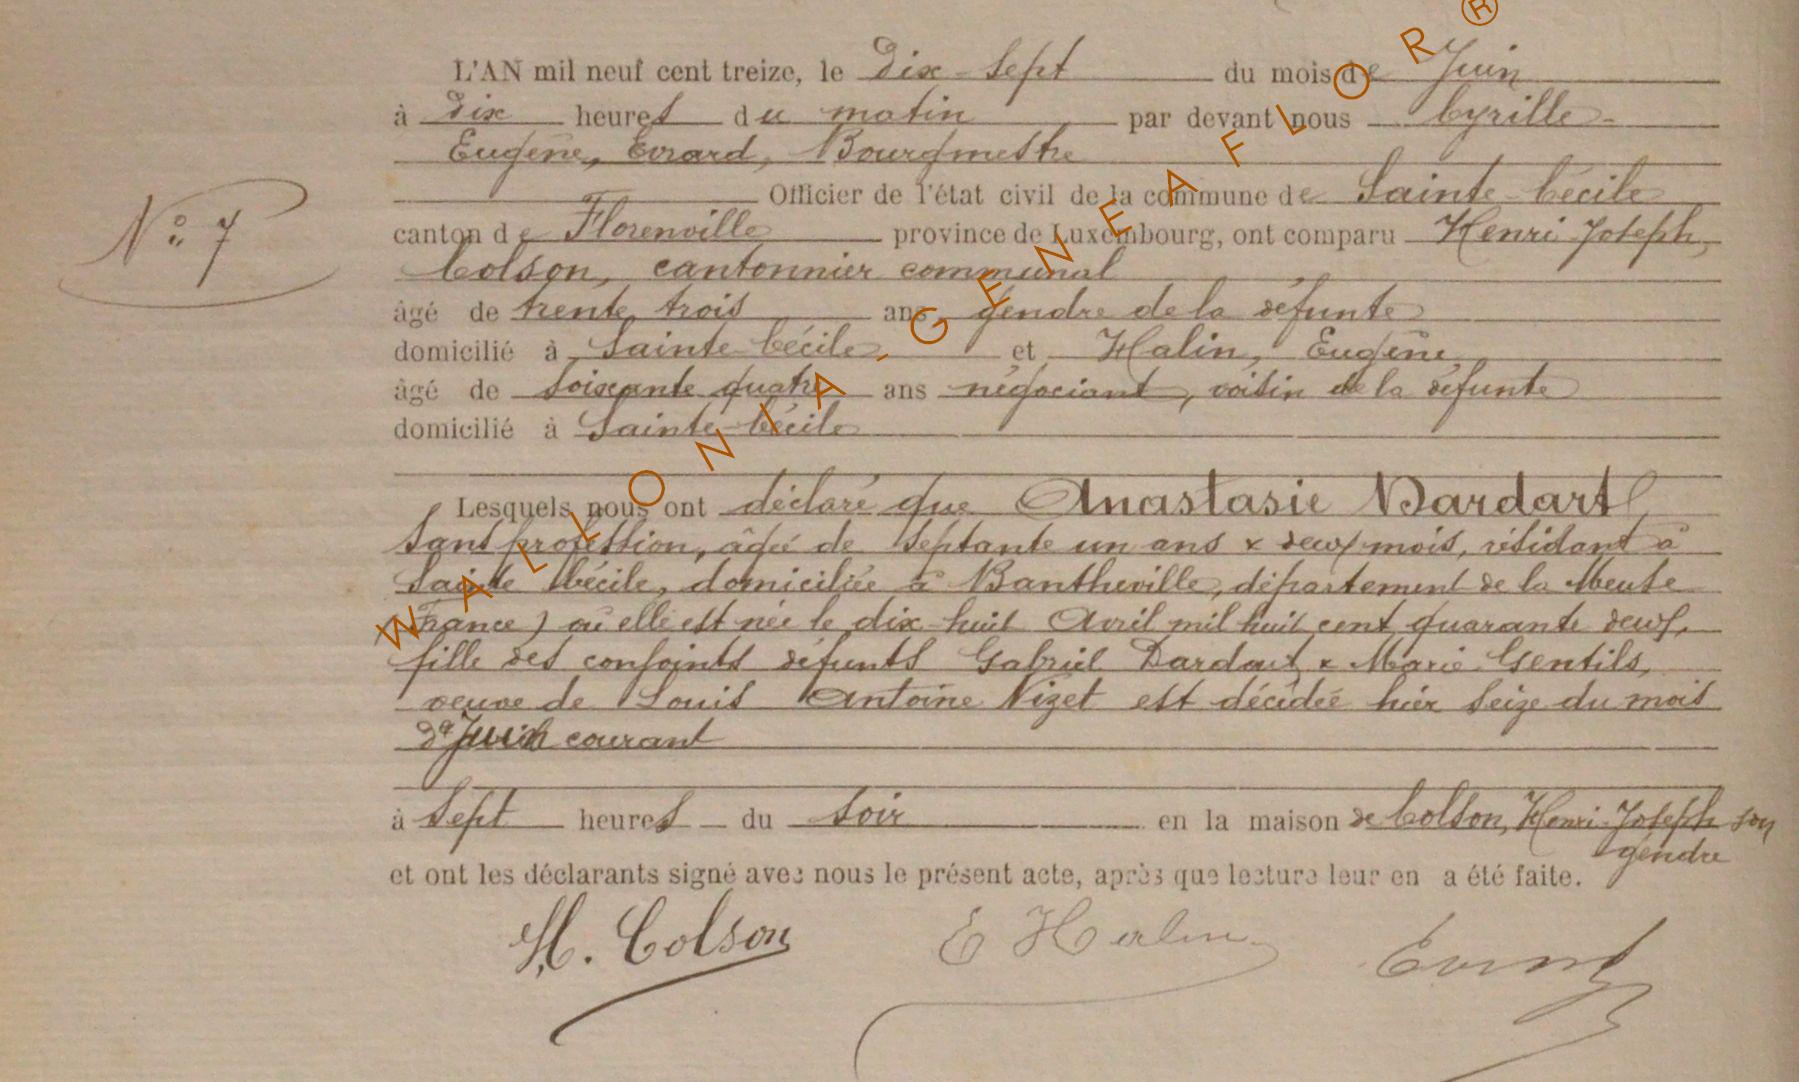 L'AN mil neuf cent treize, le Dix-Sept du mois de Juin
à Dix heures du matin par devant nous Cyrille
Eugène, Evrard, Bourgmestre
Officier de l'état civil de la commune de Sainte-Cécile
N° 7
canton de Florenville province de Luxembourg, ont comparu Henri Joseph,
Colson, cantonnier communal
âgé de trente trois ans gendre de la défunte
domicilié à Sainte-Cécile et Halin, Eugène
âgé de soixante quatre ans négociant, voisin de la défunte
domicilié à Sainte-Cécile
Lesquels nous ont déclaré que Anastasie Dardart
sans profession, âgée de septante un ans & deux mois, résidant à
Sainte Cécile, domiciliée à Bantheville, département de la Meuse
(France) où elle est née le dix-huit Avril mil huit cent quarante deux,
fille des conjoints défunts Gabriel Dardart & Marie Gentils,
veuve de Louis Antoine Nizet est décédée hier seize du mois
de Juin courant
à Sept heures du soir en la maison de Colson, Henri-Joseph son
gendre
et ont les déclarants signé avec nous le présent acte, après que lecture leur en a été faite.
H. Colson E Halin Evrard
WALLONIA-GENEAFLOR®